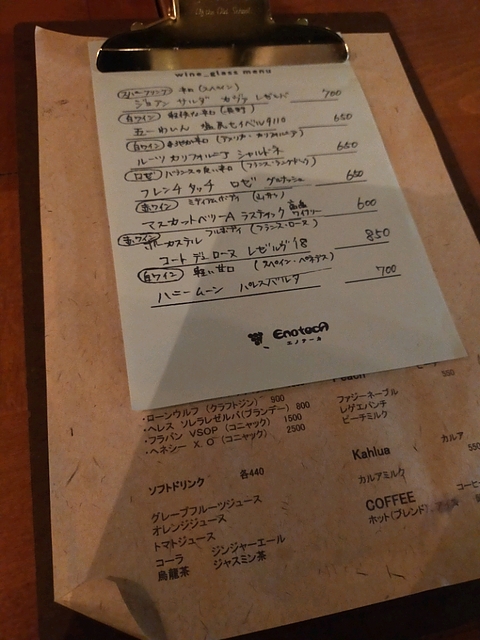 wine_glass menu
スパークリング 辛口 (スペイン)
ジョアン サルダ カヴァ レゼルバ 700
白ワイン 軽快な辛口 (長野)
五一わいん 塩尻セイベル9110 650
白ワイン (アメリカ・カリフォルニア)
ルーツ カリフォルニア シャルドネ 650
ロゼ バランスの良い辛口 (フランス・ラングドック)
フレンチ タッチ ロゼ グルナッシュ 650
赤ワイン ミディアムボディ (山形)
マスカットベリーA ラスティック 高畠ワイナリー 600
赤ワイン フルボディ (フランス・ローヌ)
カステル
コート デュ ローヌ レゼルヴ 18 850
白ワイン 軽い甘口 (スペイン・ペネデス)
ハニームーン パレスバルタ 700
EnotecA
エノテーカ
・ローンウルフ (クラフトジン) 900
・ヘレス ソレラレゼルバ(ブランデー) 800
・フラパン VSOP (コニャック) 1500
・ヘネシー X.O (コニャック) 2500
ソフトドリンク 各440
グレープフルーツジュース
オレンジジュース
トマトジュース
コーラ ジンジャーエール
烏龍茶 ジャスミン茶
Peach
ファジーネーブル
レゲエパンチ
ピーチミルク
Kahlua カルア
カルアミルク 550
COFFEE コーヒー
ホット(ブレンド)